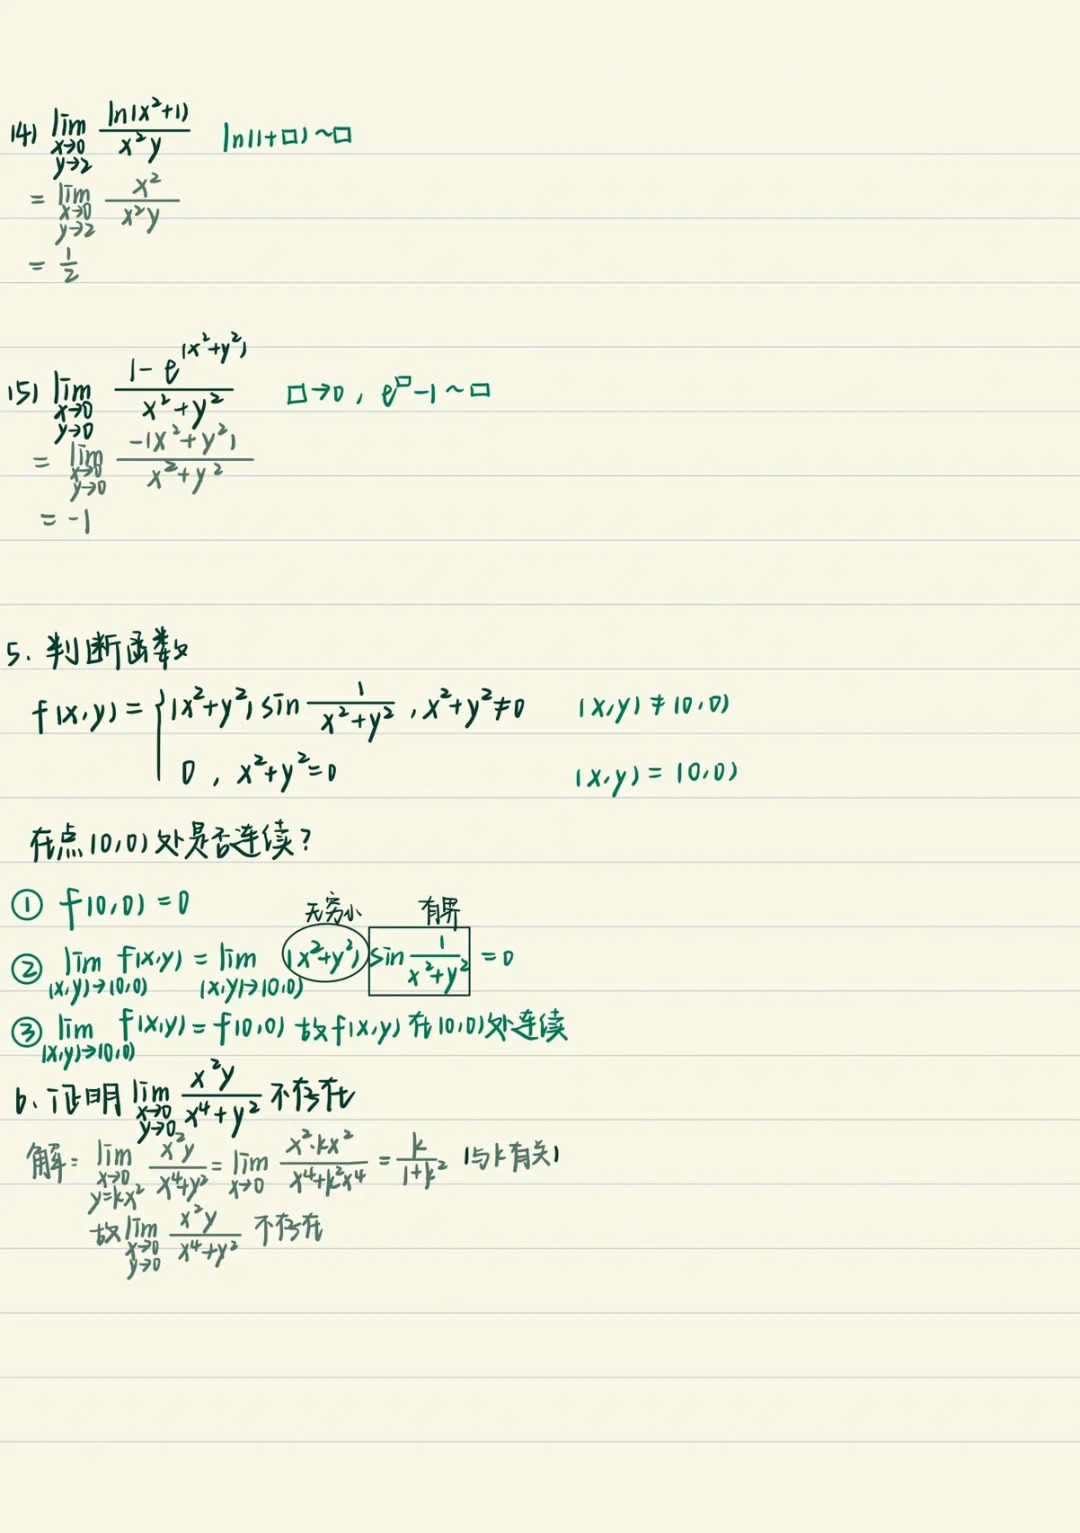 (4) lim x→0 y→2 ln(x²+1)/x²y ln(1+□)~□
= lim x→0 y→2 x²/x²y
= 1/2
(5) lim x→0 y→0 1-e^(x²+y²)/x²+y² □→0, e^□-1~□
= lim x→0 y→0 -(x²+y²)/x²+y²
= -1
5. 判断函数
f(x,y) = { (x²+y²) sin 1/x²+y², x²+y²≠0 (x,y)≠(0,0)
0, x²+y²=0 (x,y)=(0,0)
在点(0,0)处是否连续?
① f(0,0)=0
无穷小 有界
② lim (x,y)→(0,0) f(x,y) = lim (x,y)→(0,0) (x²+y²) sin 1/x²+y² = 0
③ lim (x,y)→(0,0) f(x,y) = f(0,0) 故f(x,y)在(0,0)处连续
6. 证明 lim x→0 y→0 x²y/x⁴+y² 不存在
解: lim x→0 y=kx² x²y/x⁴+y² = lim x→0 x²·kx²/x⁴+k²x⁴ = k/1+k² (与k有关)
故 lim x→0 y→0 x²y/x⁴+y² 不存在